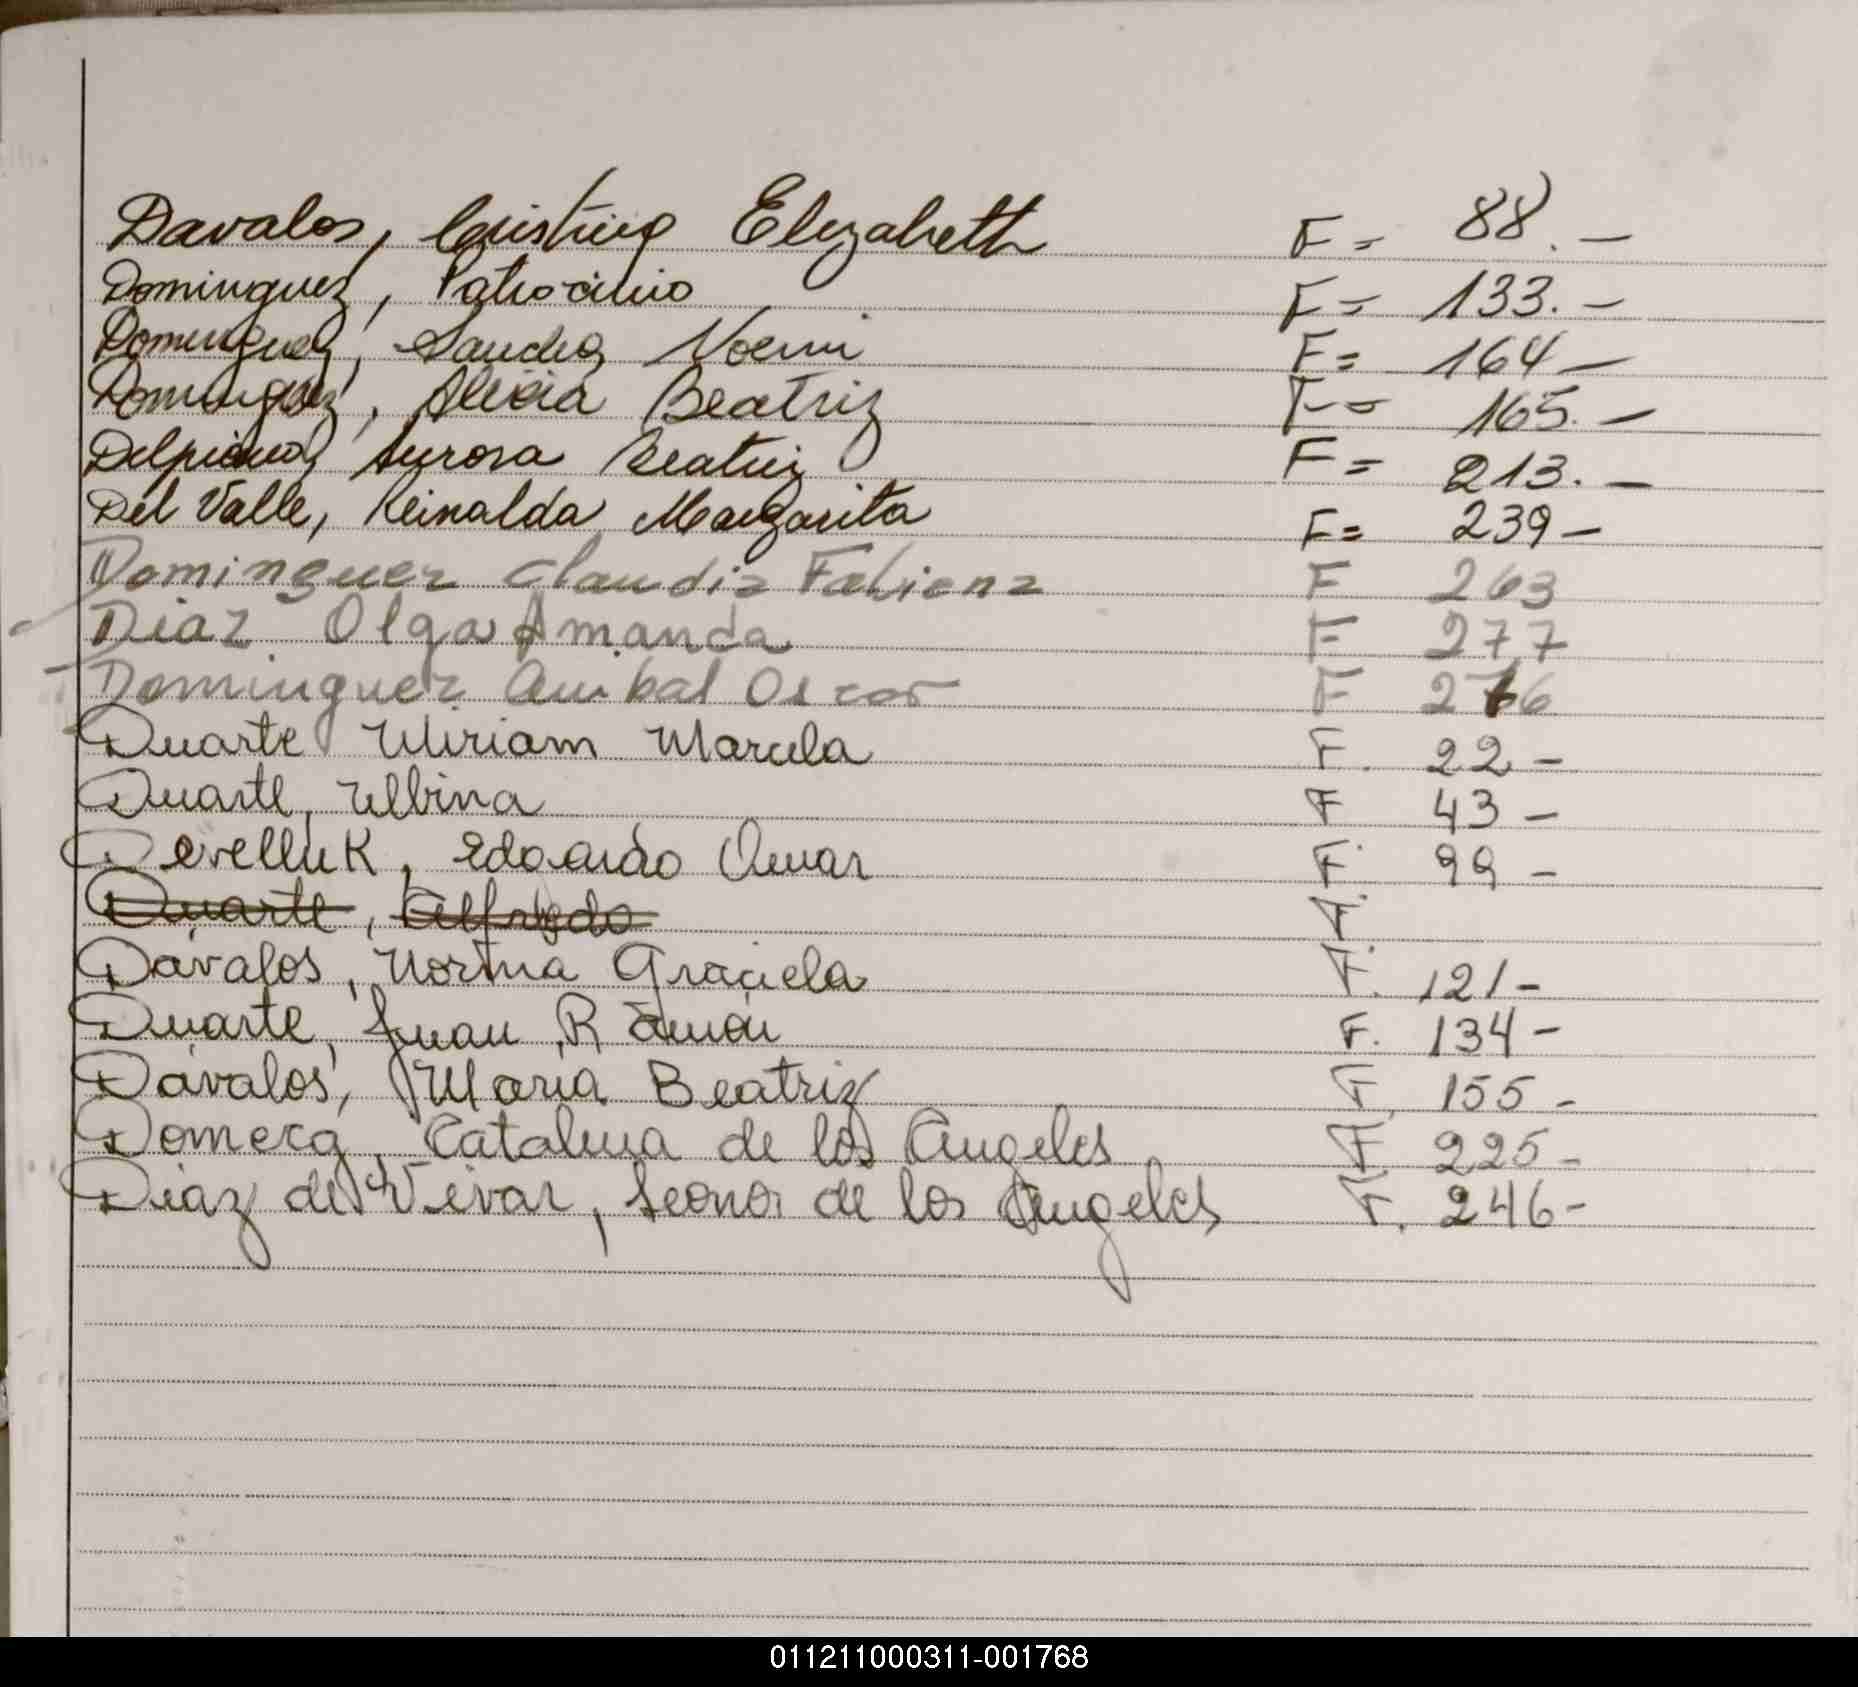 Davalos, Cristina Elizabeth F = 88. —
Dominguez, Patrocinio F = 133. —
Dominguez, Sandra Noemi F = 164 —
Dominguez, Alicia Beatriz F = 165. —
Delpiano, Aurora Beatriz F = 213. —
Del Valle, Reinalda Margarita F = 239 —
Dominguez Claudia Fabiana F 263
Diaz Olga Amanda F 277
Dominguez Anibal Oscar F 276
Duarte Miriam Marcela F. 22 —
Duarte, Albina F 43 —
Develluk, Edoardo Omar F. 99 —
Duarte, Alfredo F.
Davalos, Norma Graciela F. 121 —
Duarte, Juan Ramón F. 134 —
Davalos, Maria Beatriz F. 155 -
Domecq, Catalina de los Angeles F. 225 -
Diaz de Vivar, Leonor de los Angeles F. 246 -
011211000311-001768